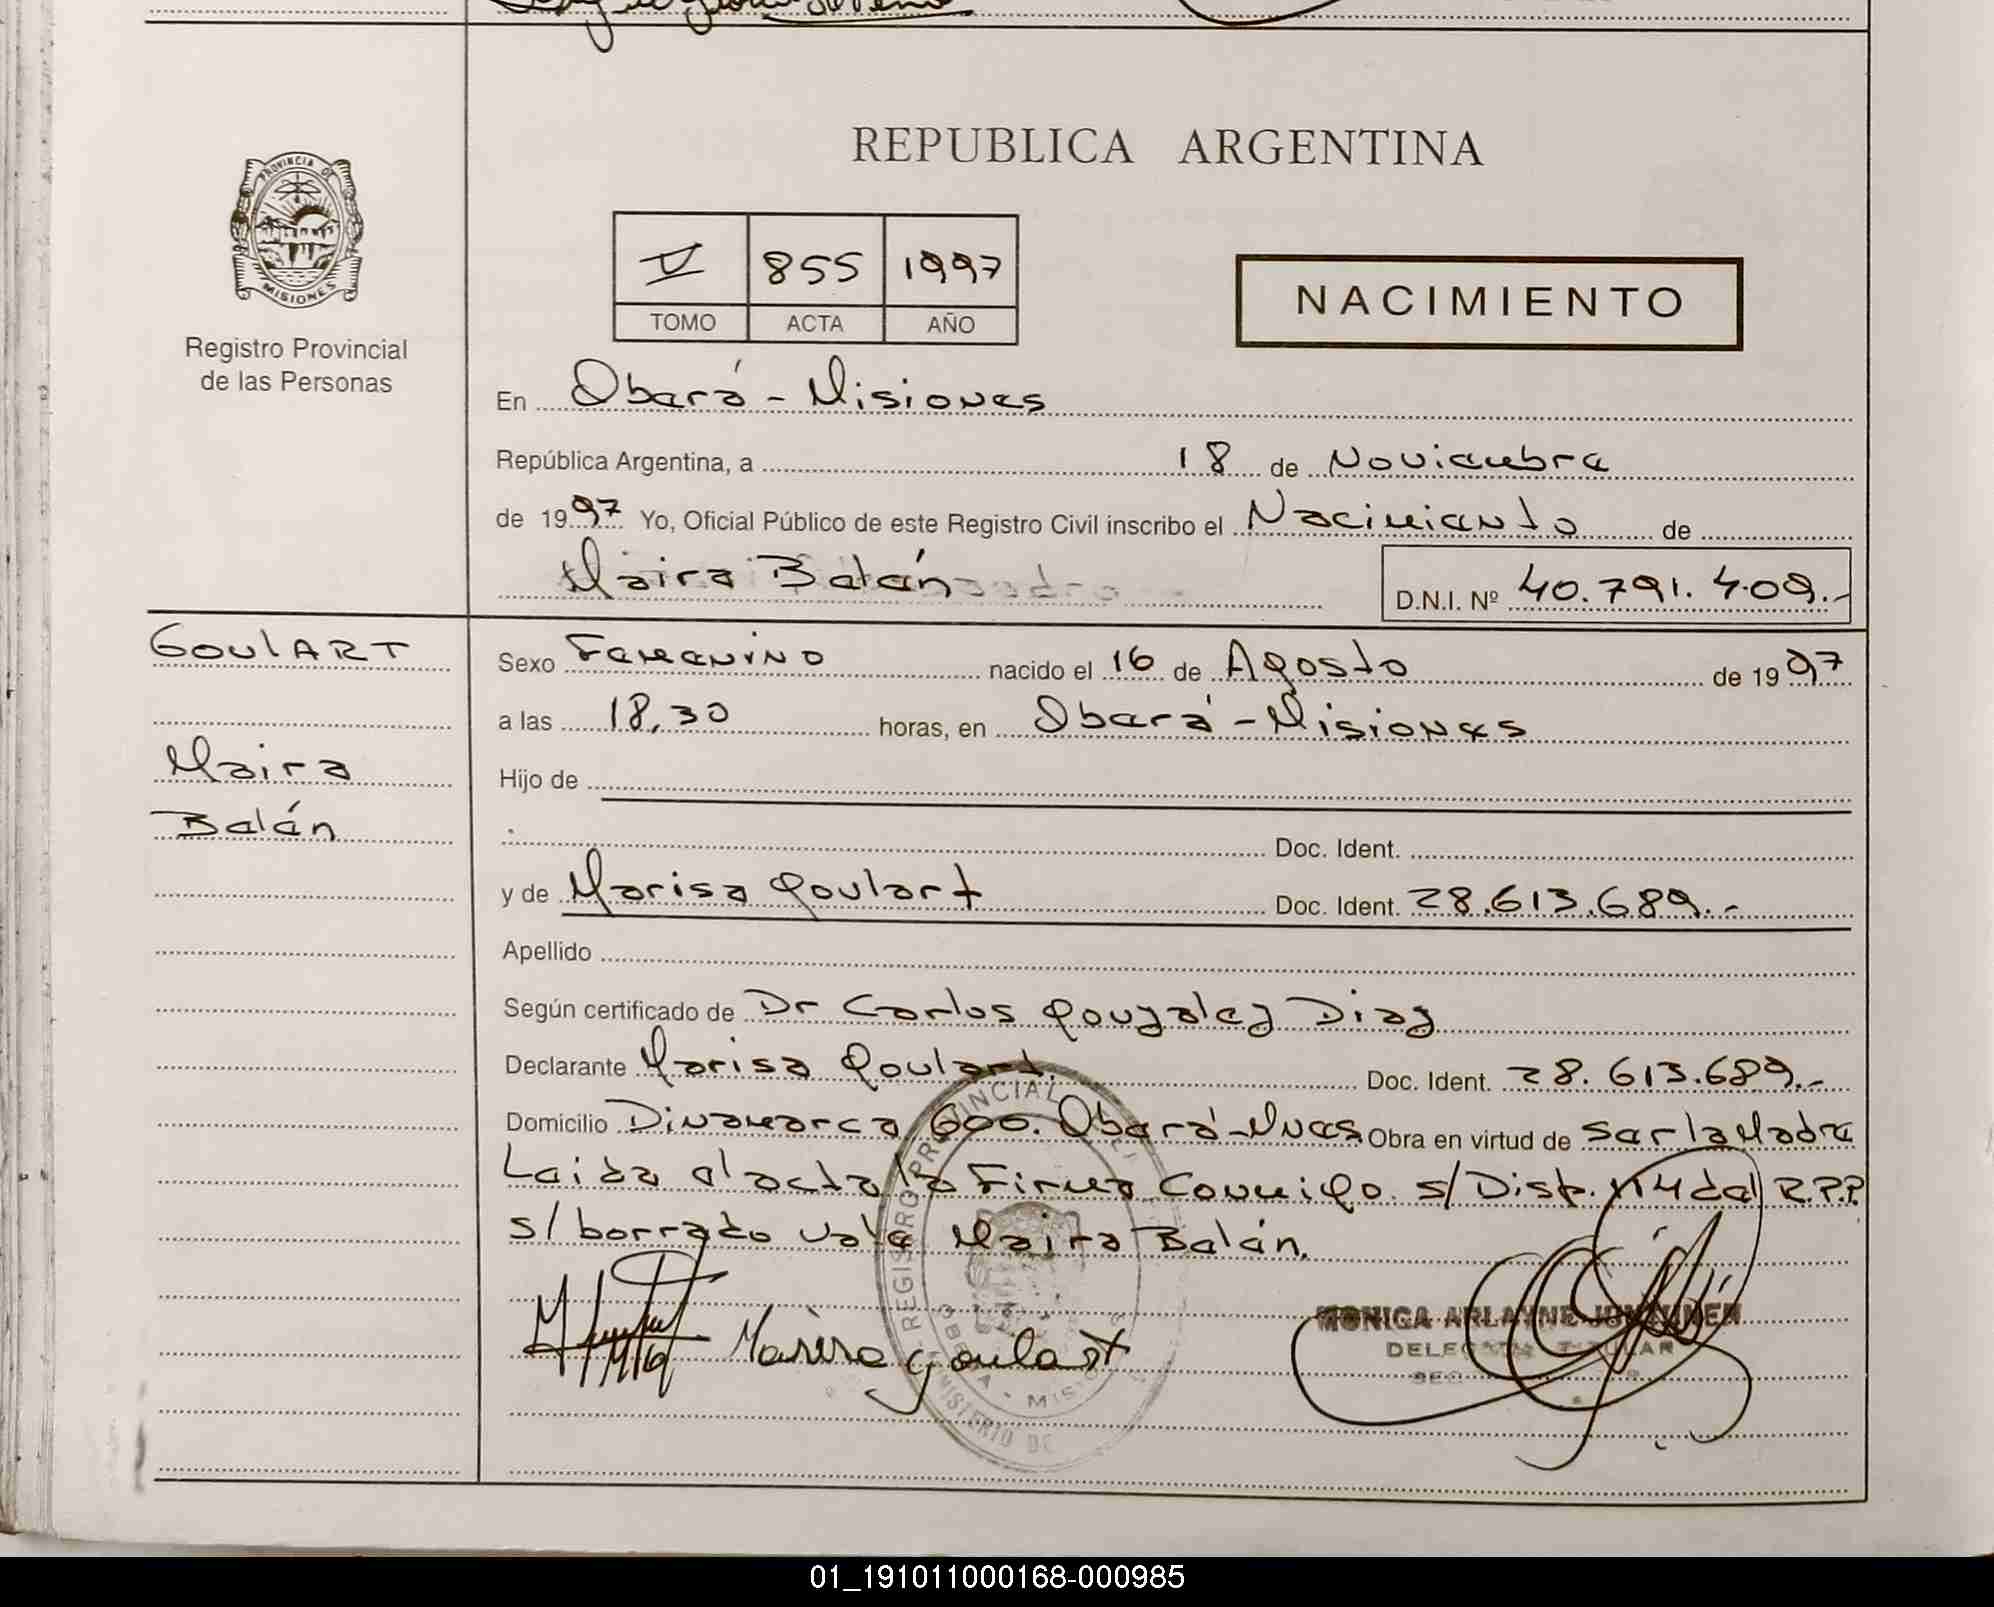 REPUBLICA ARGENTINA
PROVINCIA DE
MISIONES
Registro Provincial
de las Personas
V 855 1997
TOMO ACTA AÑO
NACIMIENTO
En Oberá - Misiones
República Argentina, a 18 de Noviembre
de 1997 Yo, Oficial Público de este Registro Civil inscribo el Nacimiento de
Maira Belén
D.N.I. Nº 40.791.409.-
GoulART
Maira
Belén
Sexo Femenino nacido el 16 de Agosto de 1997
a las 18,30 horas, en Oberá - Misiones
Hijo de
Doc. Ident.
y de Marisa Goulart Doc. Ident. 28.613.689.-
Apellido
Según certificado de Dr Carlos Gonzalez Diaz
Declarante Marisa Goulart. Doc. Ident. 28.613.689.-
Domicilio Dinamarca 600. Oberá - Mnes Obra en virtud de ser la Madre
Leida el acta la Firma Conmigo. s/ Disp. 114 del R.P.P
s/ borrado vale Maira Belén.
Marisa goulart
MONICA ARLAYNE
REGISTRO PROVINCIAL
OBERA - MISIONES
MINISTERIO DE
01_191011000168-000985